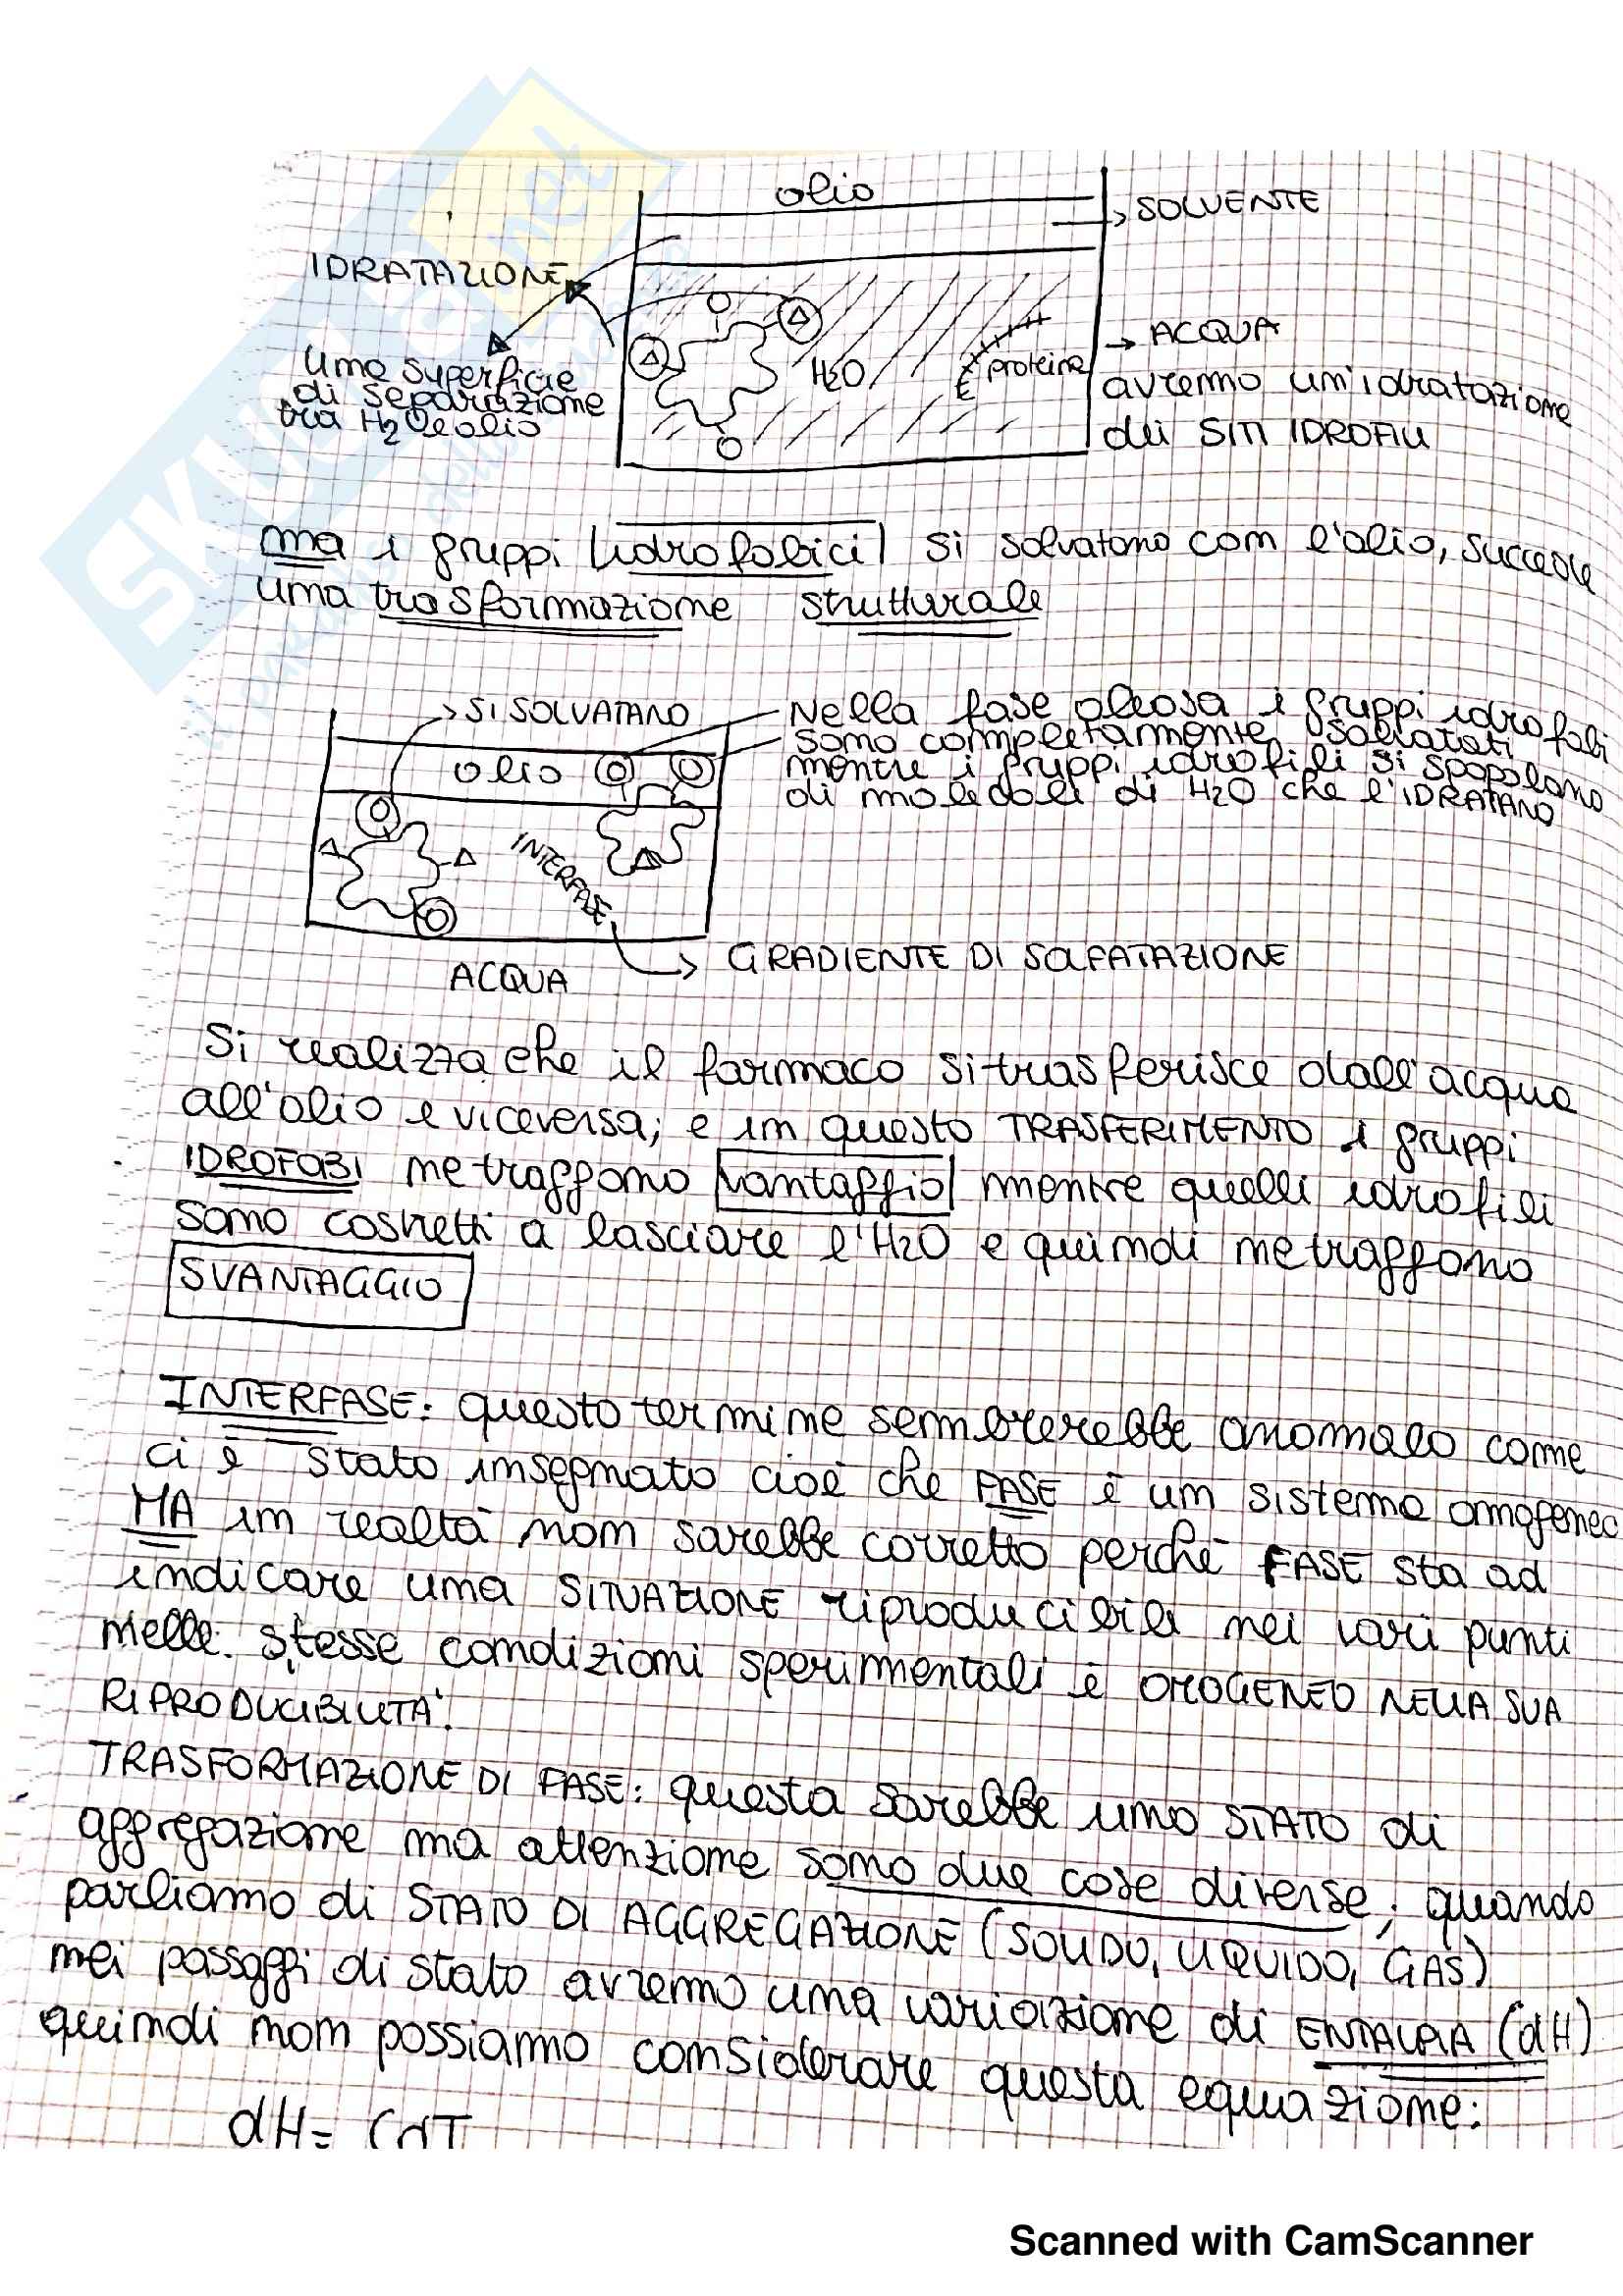 olio
→ SOLVENTE
IDRATAZIONE
una superficie
di separazione
tra H2O e olio
H2O
proteine
→ ACQUA
avremo un'idratazione
dei SITI IDROFILI
ma i gruppi idrofobici si solvatano con l'olio, succede
una trasformazione strutturale
→ SI SOLVATANO
Nella fase oleosa i gruppi idrofobi
sono completamente solvatati
mentre i gruppi idrofili si spopolano
di molecole di H2O che l'IDRATANO
olio
INTERFASE
→ GRADIENTE DI SOLFATAZIONE
ACQUA
Si realizza che il farmaco si trasferisce dall'acqua
all'olio e viceversa; e in questo TRASFERIMENTO i gruppi
IDROFOBI ne traggono vantaggio mentre quelli idrofili
sono costretti a lasciare l'H2O e quindi ne traggono
SVANTAGGIO
INTERFASE: questo termine sembrerebbe anomalo come
ci è stato insegnato cioè che FASE è un sistema omogeneo
MA in realtà non sarebbe corretto perché FASE sta ad
indicare una SITUAZIONE riproducibile nei vari punti
nelle stesse condizioni sperimentali è OMOGENEO NELLA SUA
RIPRODUCIBILITA'.
TRASFORMAZIONE DI FASE: questa sarebbe uno STATO di
aggregazione ma attenzione sono due cose diverse; quando
parliamo di STATO DI AGGREGAZIONE (SOLIDO, LIQUIDO, GAS)
nei passaggi di stato avremo una variazione di ENTALPIA (dH)
quindi non possiamo considerare questa equazione:
dH= CdT
SKUOLA.net
Scanned with CamScanner